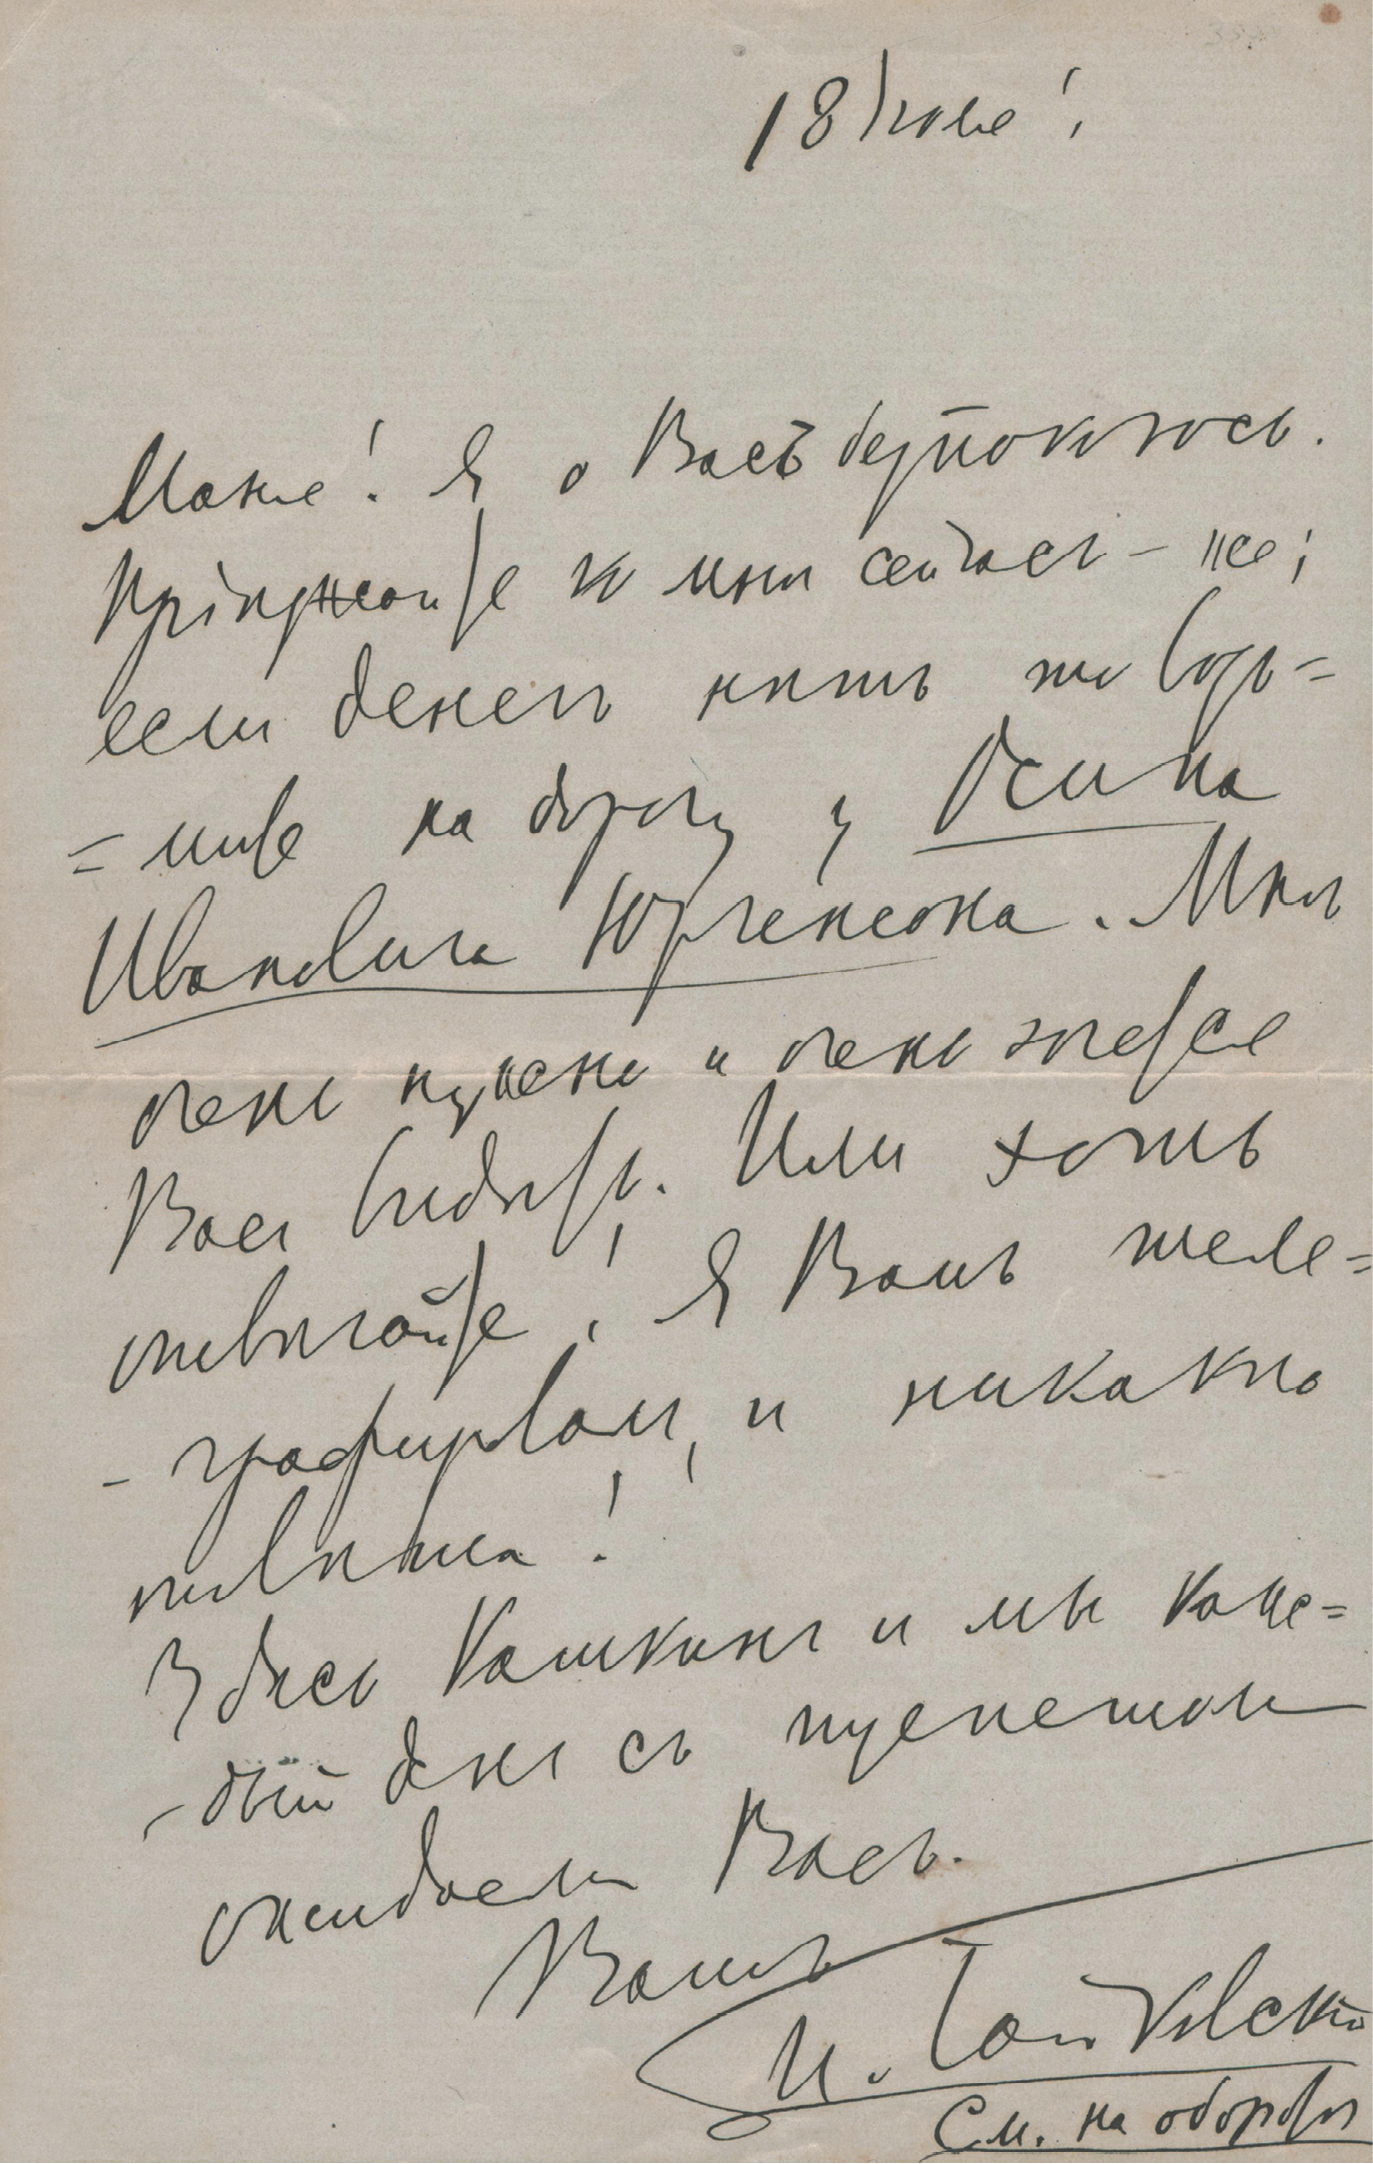 18 Iюля
Маня! Я о Васъ безпокоюсь.
Прiѣзжайте ко мнѣ сейчасъ-же;
если денегъ нѣтъ то возь=
=мите на дорогу у Осипа
Ивановича Юргенсона. Мнѣ
очень нужно и очень хочется
Васъ видѣть. Или хоть
отвѣчайте, Я Вамъ теле=
-графировалъ, и никакого
отвѣта!
Здѣсь Кашкинъ и мы каж=
-дый день съ трепетомъ
ожидаемъ Васъ.
Вашъ
П. Чайковскiй
См. на оборотѣ